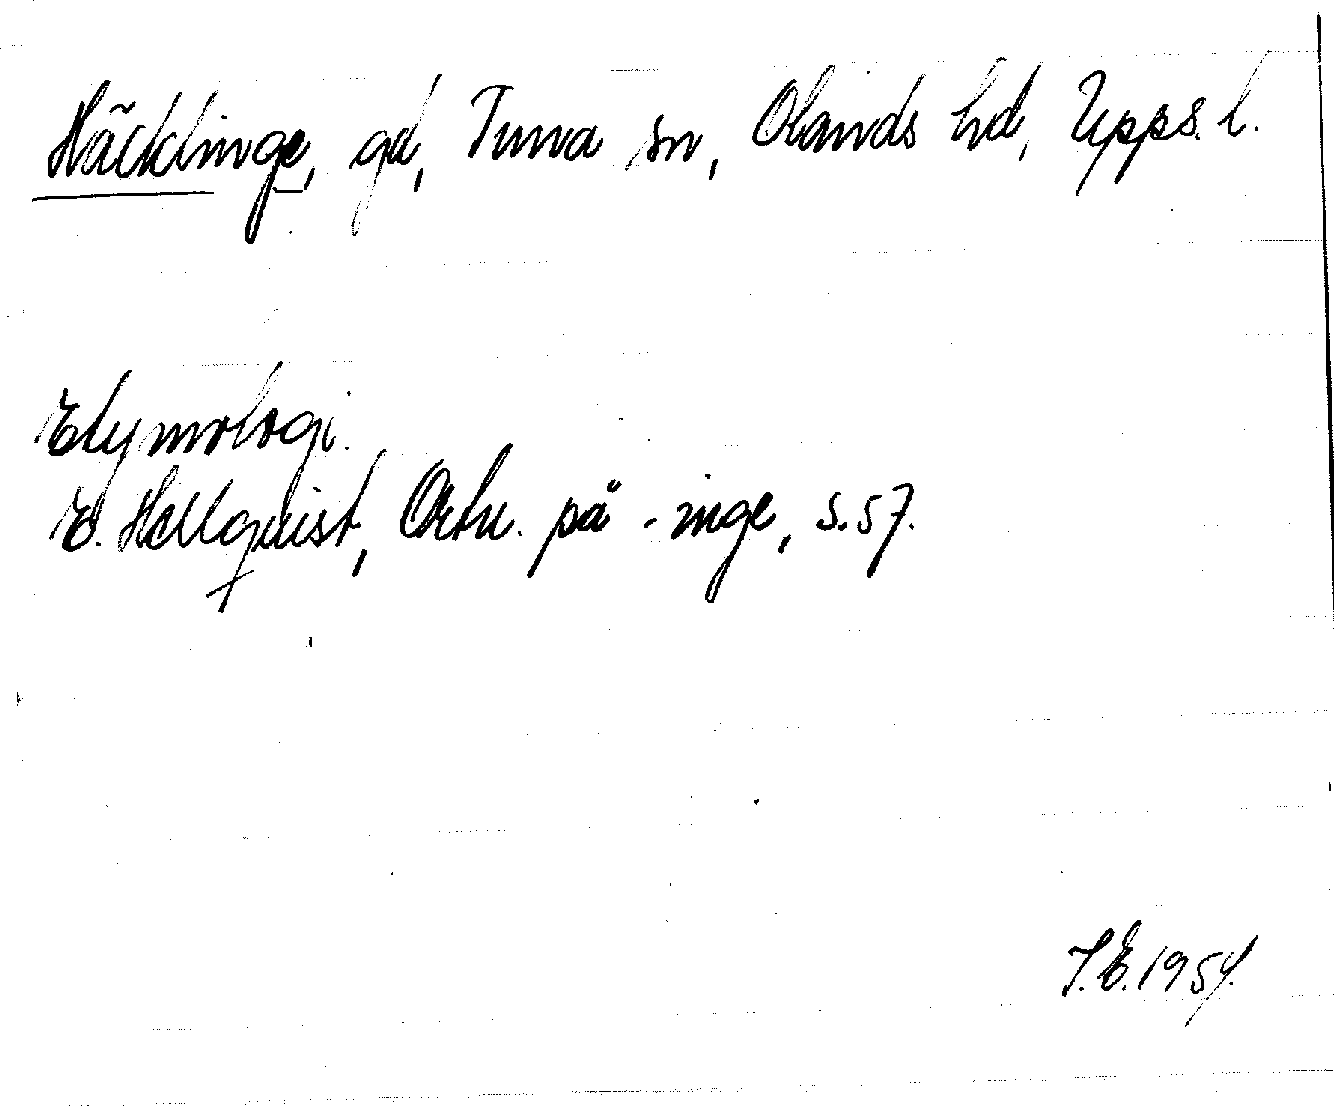 Häcklinge, gd, Tuna sn, Olands hd, Upps. l.
Etymologi.
E. Hellquist, Ortn. på -inge, s. 57.
I. E. 1954.